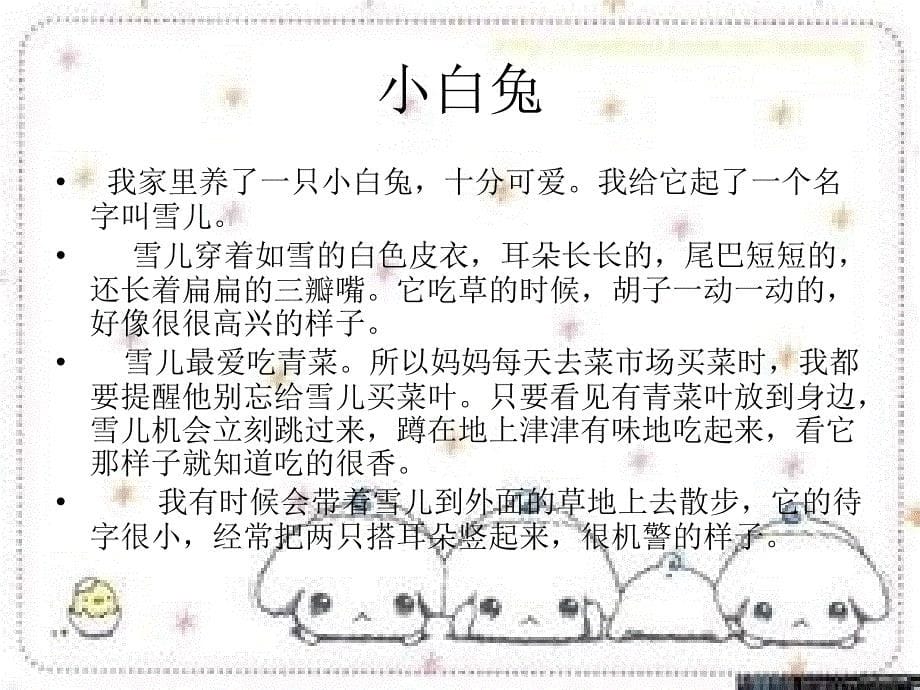 小白兔
• 我家里养了一只小白兔，十分可爱。我给它起了一个名
字叫雪儿。
• 雪儿穿着如雪的白色皮衣，耳朵长长的，尾巴短短的，
还长着扁扁的三瓣嘴。它吃草的时候，胡子一动一动的，
好像很很高兴的样子。
• 雪儿最爱吃青菜。所以妈妈每天去菜市场买菜时，我都
要提醒他别忘给雪儿买菜叶。只要看见有青菜叶放到身边，
雪儿机会立刻跳过来，蹲在地上津津有味地吃起来，看它
那样子就知道吃的很香。
• 我有时候会带着雪儿到外面的草地上去散步，它的待
字很小，经常把两只搭耳朵竖起来，很机警的样子。